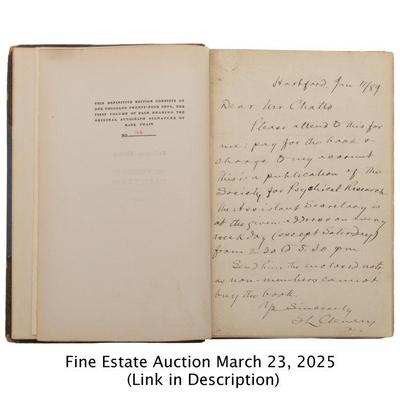 THIS DEFINITIVE EDITION CONSISTS OF
ONE THOUSAND TWENTY-FOUR SETS, THE
FIRST VOLUME OF EACH BEARING THE
ORIGINAL AUTOGRAPH SIGNATURE OF
MARK TWAIN
NO.
Hartford, Jan 11/89
Dear Mr Chatto
Please attend to this for
me: pay for the book &
charge to my account
this is a publication of the
Society for Psychical Research
the Assistant Secretary is
at the given address on every
week day (except Saturday)
from 2.30 to 5.30 pm
Send him the enclosed note
as non-members cannot
buy the book.
Yrs Sincerely
SL Clemens
Fine Estate Auction March 23, 2025
(Link in Description)